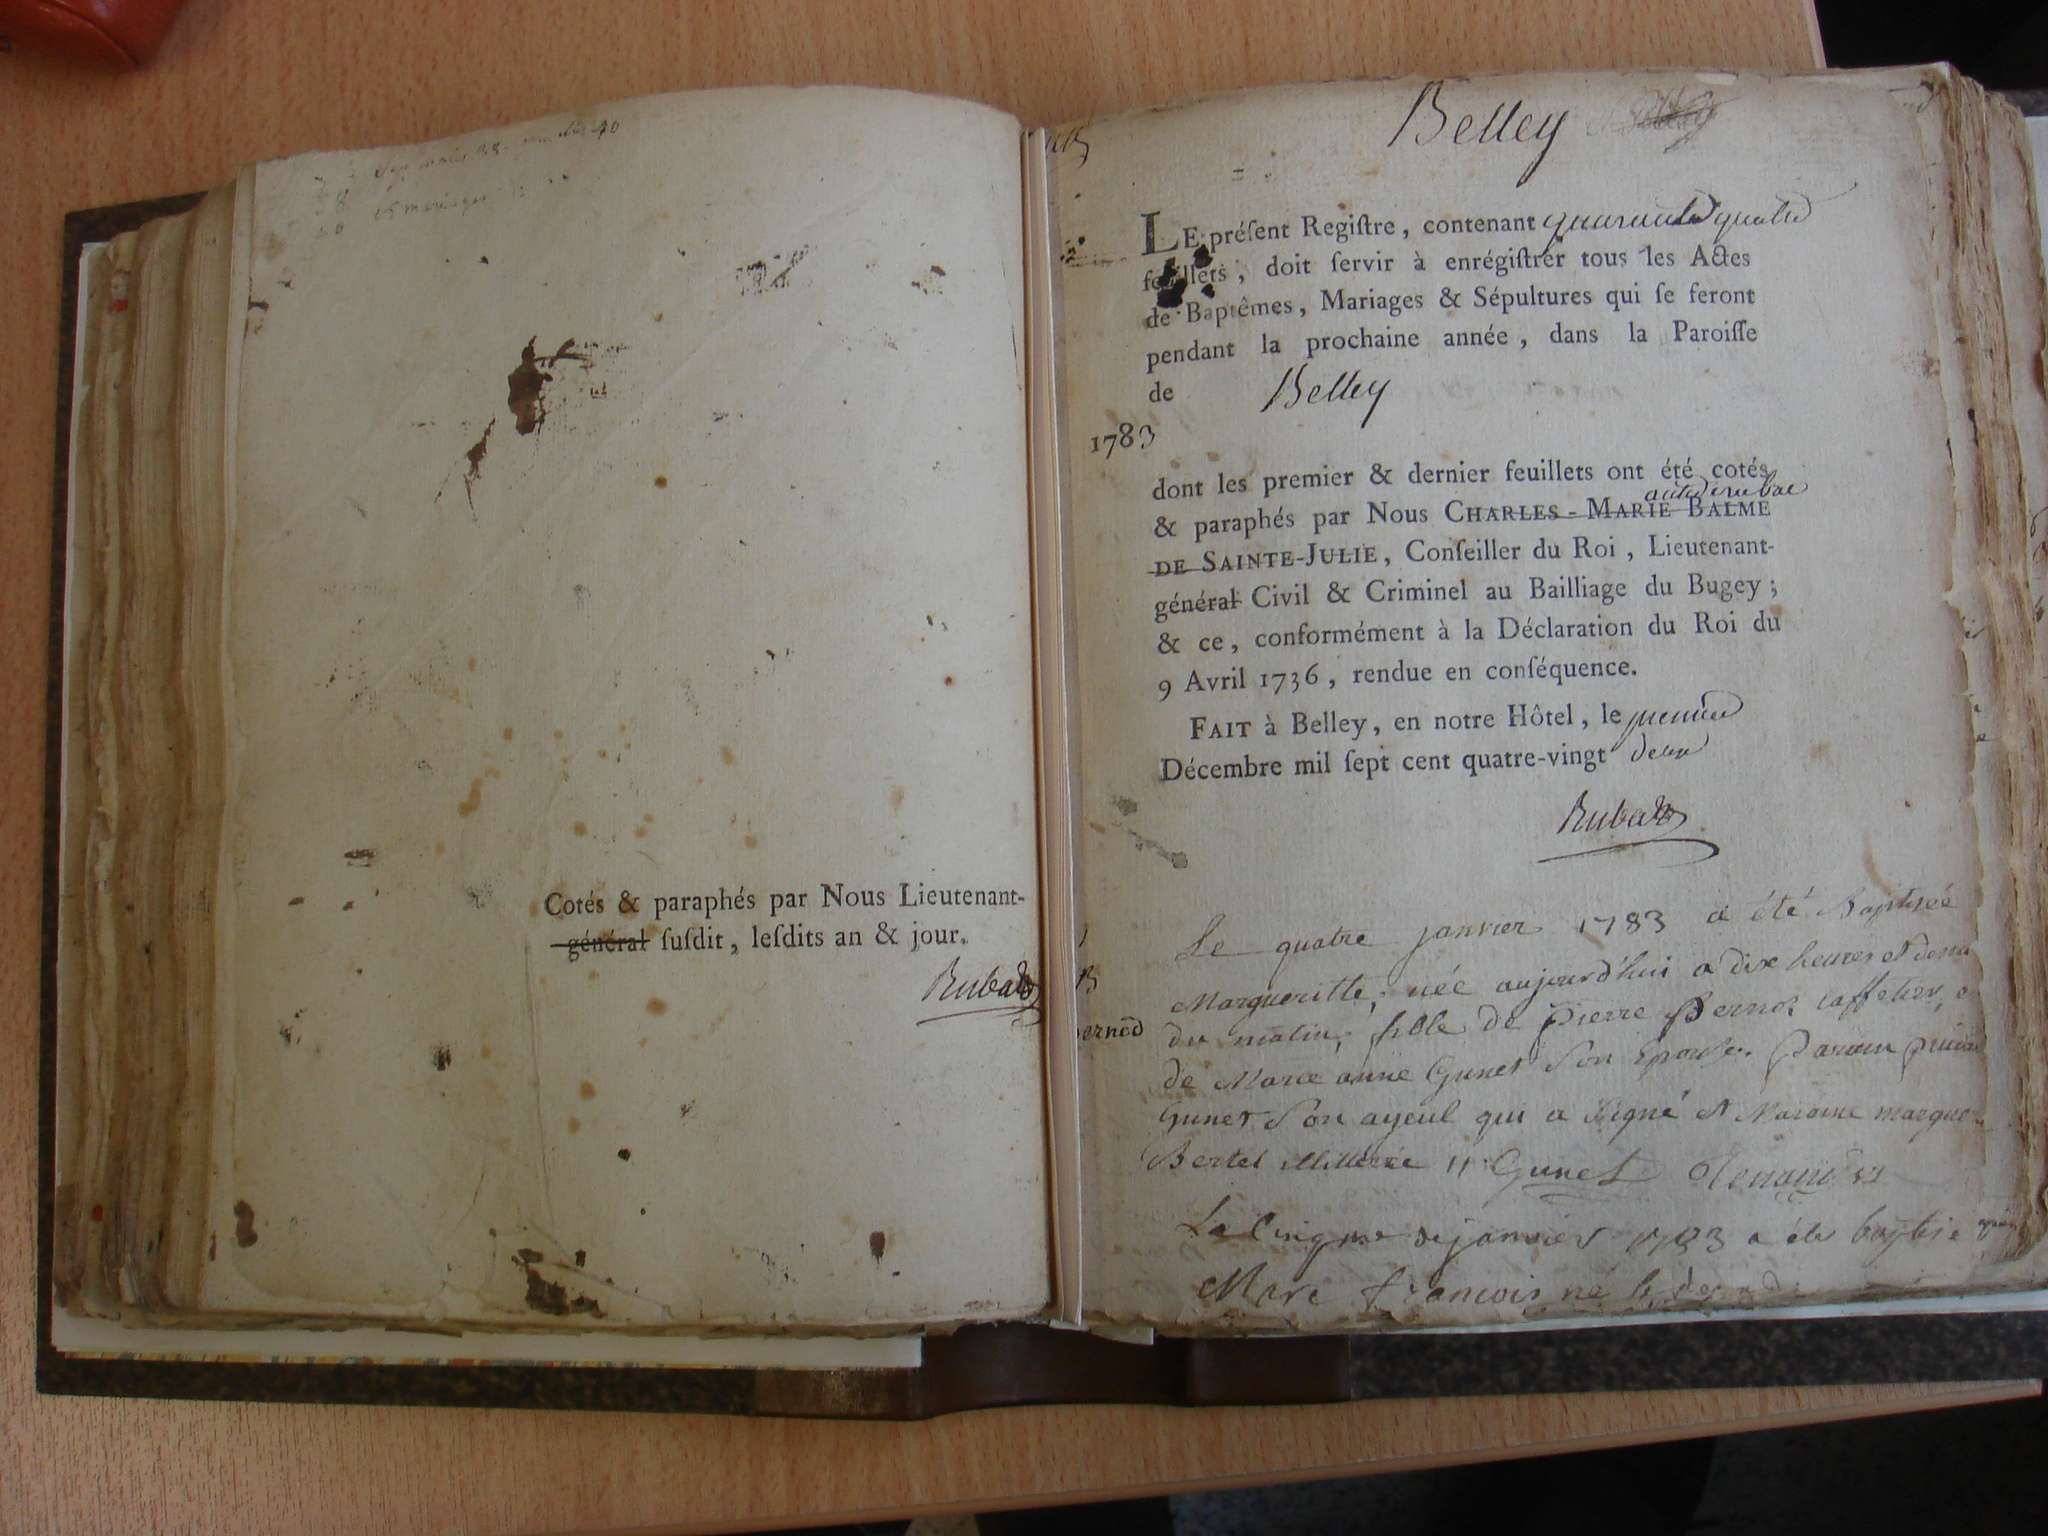 40
mariages
Cotés & paraphés par Nous Lieutenant-
général ſuſdit, leſdits an & jour.
Rubat
Belley
LE préſent Regiſtre, contenant quarante quatre
feuillets, doit ſervir à enrégiſtrer tous les Actes
de Baptêmes, Mariages & Sépultures qui ſe feront
pendant la prochaine année, dans la Paroiſſe
de Belley
1783
dont les premier & dernier feuillets ont été cotés
& paraphés par Nous CHARLES-MARIE BALME
DE SAINTE-JULIE, Conſeiller du Roi, Lieutenant-
général Civil & Criminel au Bailliage du Bugey;
& ce, conformément à la Déclaration du Roi du
9 Avril 1736, rendue en conſéquence.
FAIT à Belley, en notre Hôtel, le premier
Décembre mil ſept cent quatre-vingt deux
Rubat
Le quatre janvier 1783 a été Baptisée
Margueritte, née aujourd'hui a dix heures et demi
du matin, fille de pierre Pernod caffetier, e
de Marie anne Gunet Son Epouse. Parain
Gunet Son ayeul qui a signé et Maraine margue-
Bertet Gunet
Le Cinq janvier 1783 a été
Marc françois né le